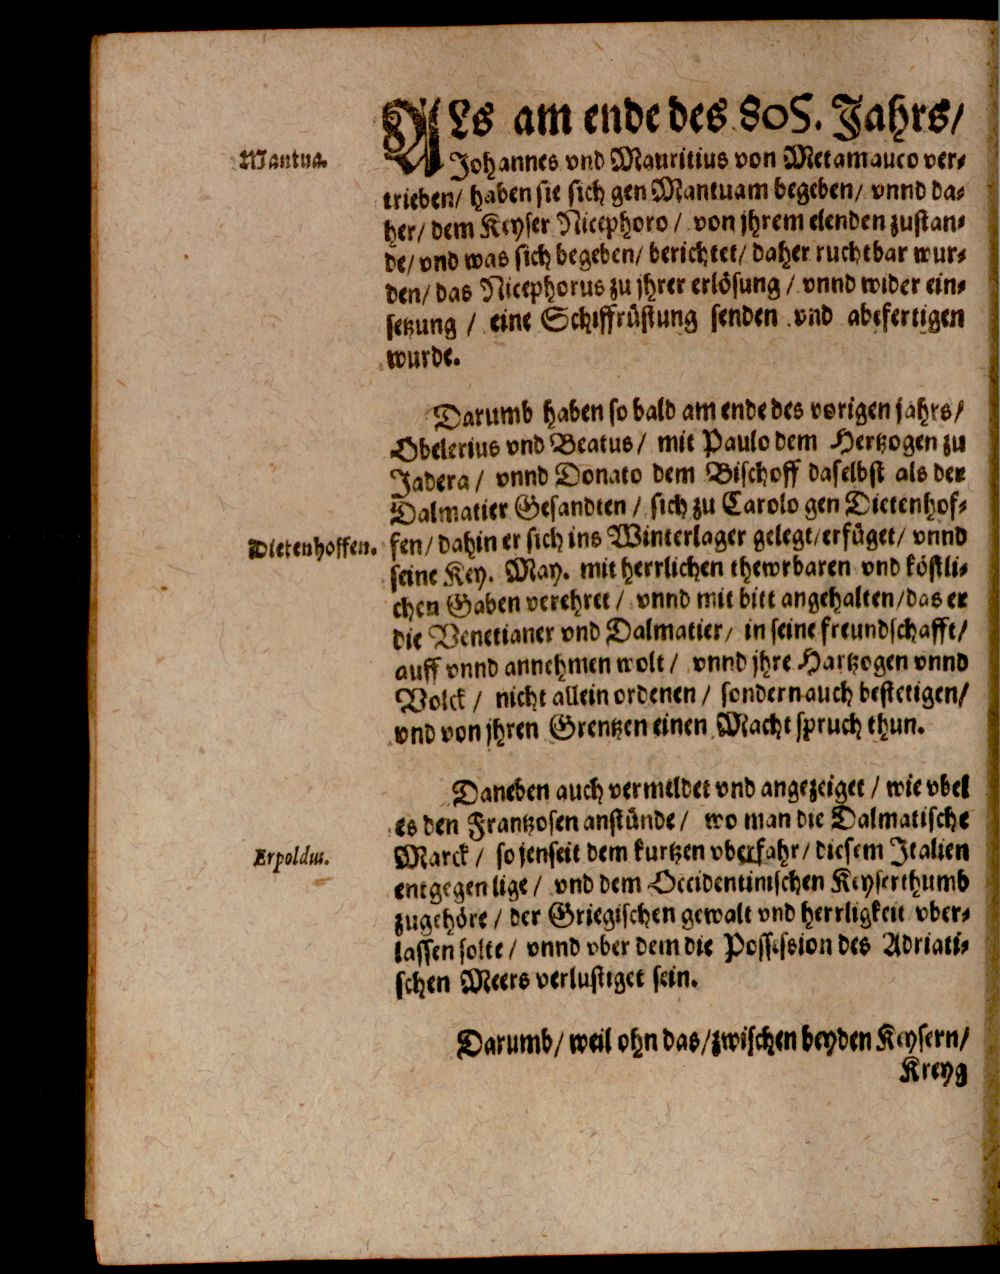 ALs am ende des 805. Jahrs/
Mantua.
Johannes vnd Mauritius von Metamauco ver-
trieben/ haben sie sich gen Mantuam begeben/ vnnd da-
her/ dem Keyser Nicephoro / von jhrem elenden zustan-
de/ vnd was sich begeben/ berichtet/ daher ruchtbar wur-
den/ das Nicephorus zu jhrer erlösung / vnnd wider ein-
setzung / eine Schiffrüstung senden vnd abefertigen
wurde.
Darumb haben so bald am ende des vorigen jahrs/
Obelerius vnd Beatus/ mit Paulo dem Hertzogen zu
Jadera / vnnd Donato dem Bischoff daselbst als der
Dalmatier Gesandten / sich zu Carolo gen Dietenhof-
Dietenhoffen.
fen/ dahin er sich ins Winterlager gelegt/ erfüget/ vnnd
seine Key. May. mit herrlichen thewrbaren vnd köstli-
chen Gaben verehret / vnnd mit bitt angehalten/ das er
die Venetianer vnd Dalmatier/ in seine freundschafft/
auff vnnd annehmen wolt / vnnd jhre Hartzogen vnnd
Volck / nicht allein ordenen / sondern auch bestetigen/
vnd von jhren Grentzen einen Macht spruch thun.
Daneben auch vermeldet vnd angezeiget / wie vbel
es den Frantzosen anstünde / wo man die Dalmatische
Erpoldus.
Marck / so jenseit dem kurtzen vberfahr/ diesem Italien
entgegen lige / vnd dem Occidentinischen Keyserthumb
zugehöre / der Griegischen gewalt vnd herrligkeit vber-
lassen solte / vnnd vber dem die Possession des Adriati-
schen Meers verlustiget sein.
Darumb/ weil ohn das/ zwischen beyden Keysern/
Kreyg